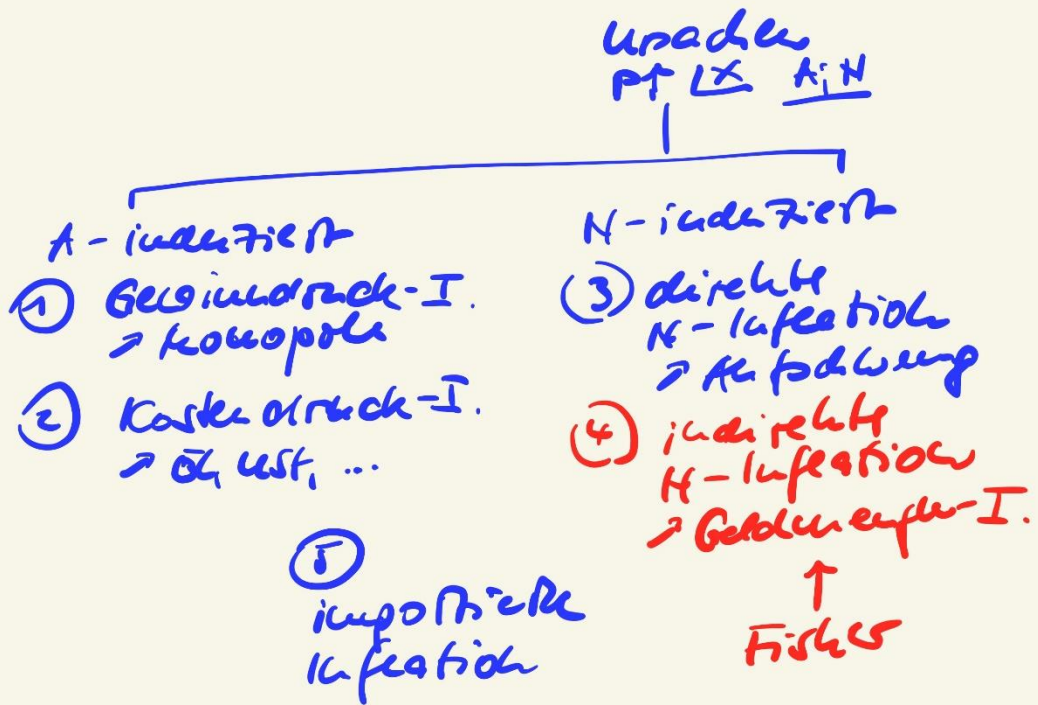 Ursachen
P↑ LX A; N
A-induziert
① Gewinndruck-I.
↗ Monopole
② Kostendruck-I.
↗ Öl, USt, ...
N-induziert
③ direkte
N-Inflation
↗ Aufschwung
④ indirekte
N-Inflation
↗ Geldmengen-I.
↑
Fisher
⑤
importierte
Inflation